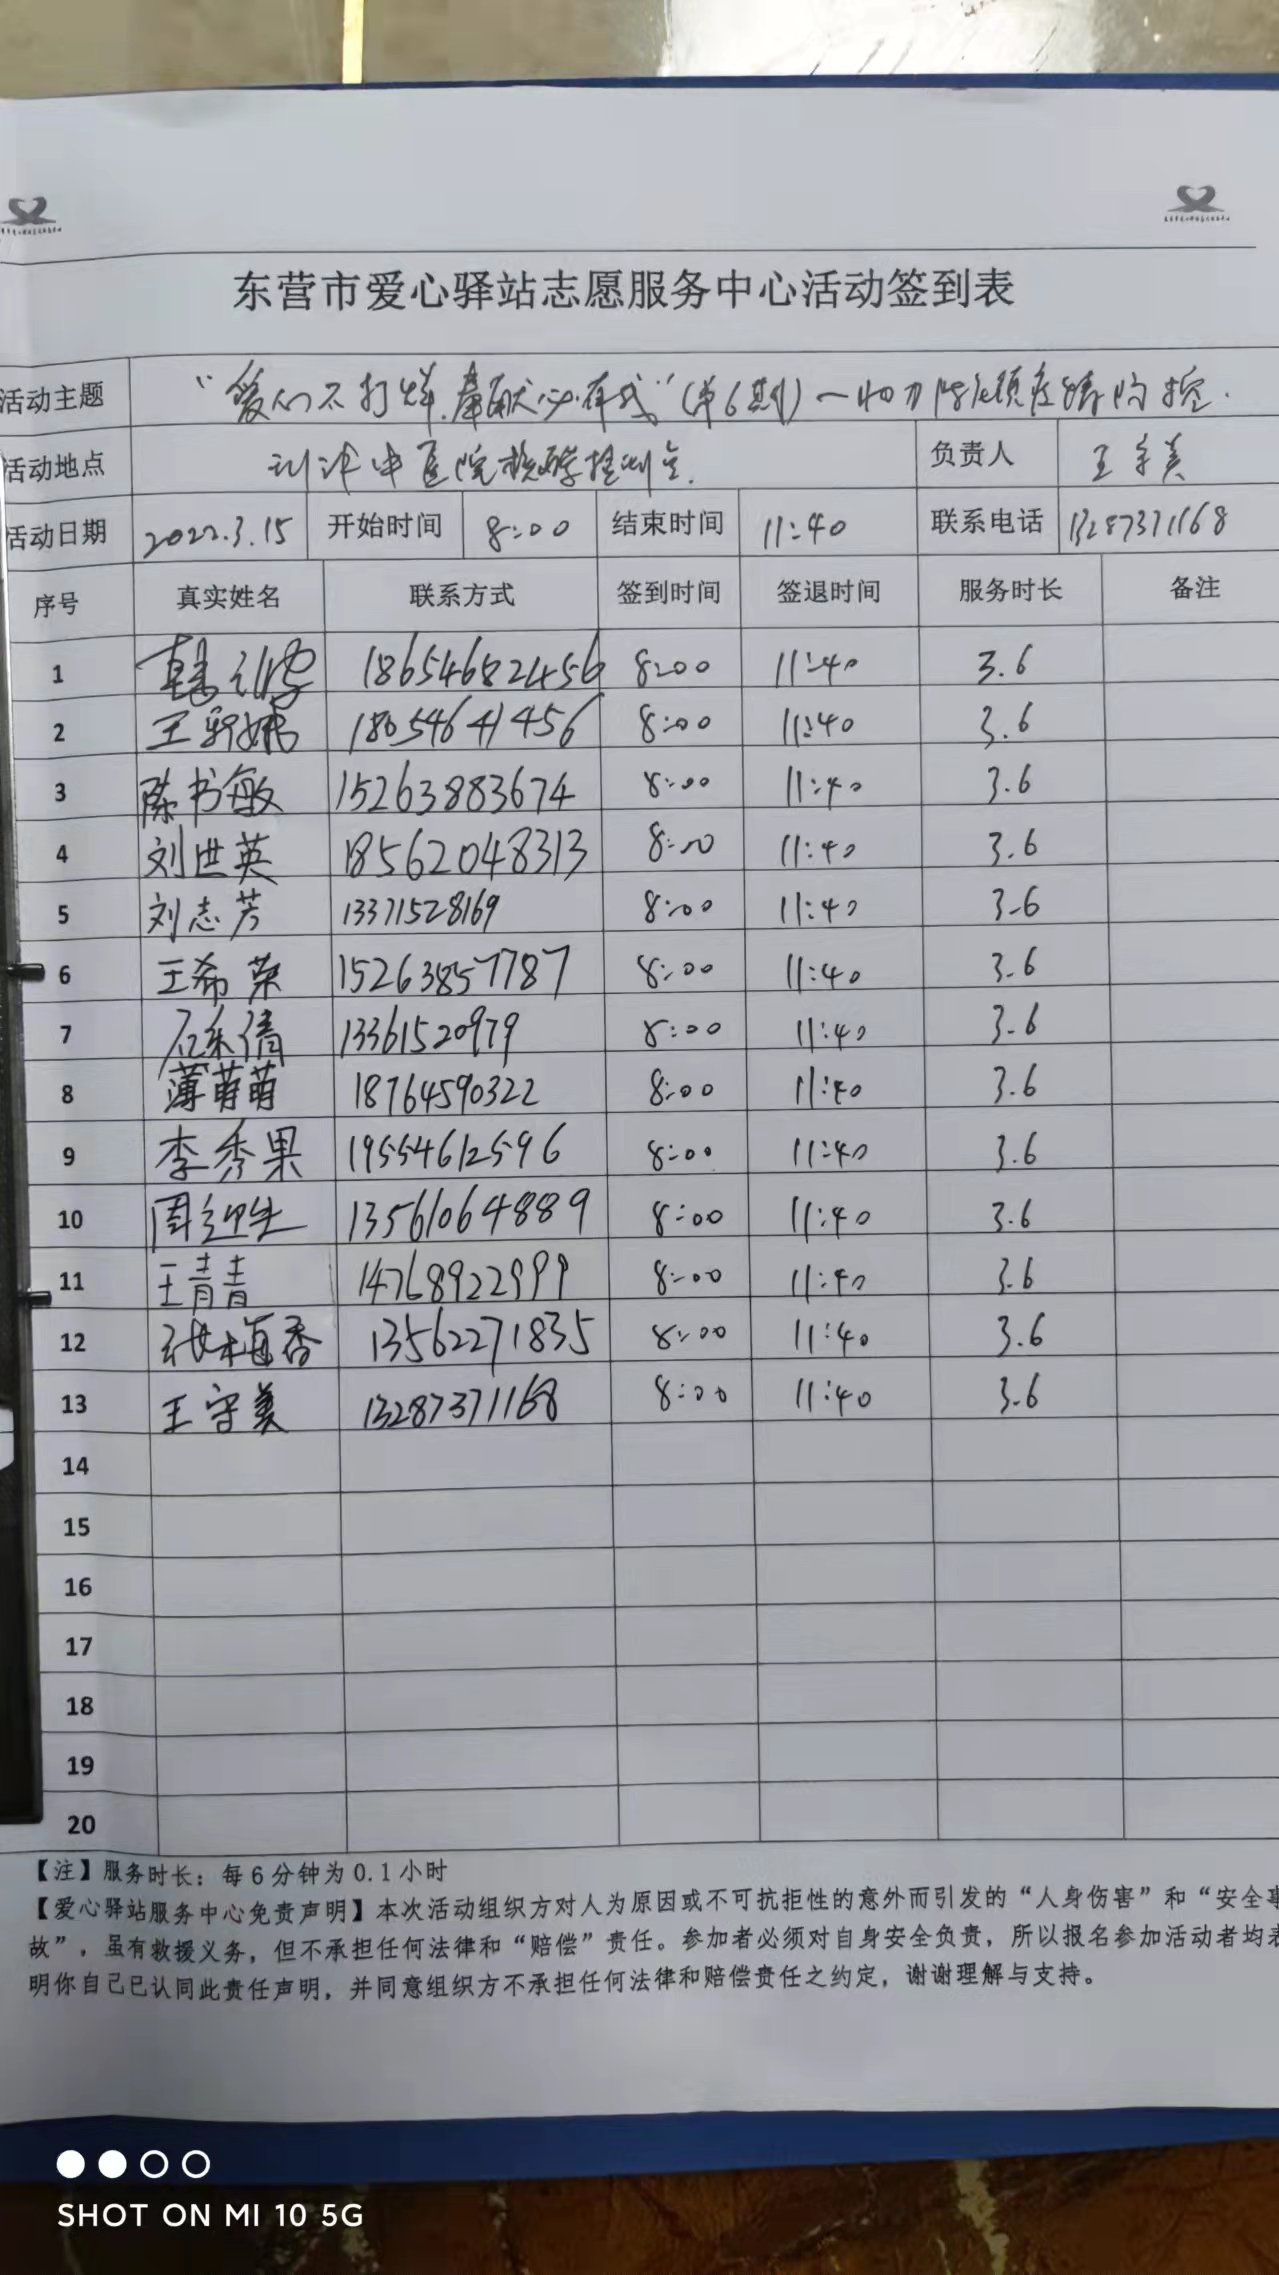 东营市爱心驿站志愿服务中心活动签到表
活动主题 "爱心不打烊,奉献必有我"(第6期)
活动地点 中医院核酸检测室. 负责人 王守美
活动日期 2022.3.15 开始时间 8:00 结束时间 11:40 联系电话 13287371168
序号 真实姓名 联系方式 签到时间 签退时间 服务时长 备注
1 韩 18654682456 8:00 11:40 3.6
2 王 18054641456 8:00 11:40 3.6
3 陈书敏 15263883674 8:00 11:40 3.6
4 刘世英 18562048313 8:00 11:40 3.6
5 刘志芳 13371528169 8:00 11:40 3.6
6 王希荣 15263857787 8:00 11:40 3.6
7 石东倩 13361520979 8:00 11:40 3.6
8 薄萌萌 18764590322 8:00 11:40 3.6
9 李秀果 19554612596 8:00 11:40 3.6
10 周迎生 13561064889 8:00 11:40 3.6
11 王青青 14768922999 8:00 11:40 3.6
12 张梅香 13562271835 8:00 11:40 3.6
13 王守美 13287371168 8:00 11:40 3.6
14
15
16
17
18
19
20
【注】服务时长:每6分钟为0.1小时
【爱心驿站服务中心免责声明】本次活动组织方对人为原因或不可抗拒性的意外而引发的“人身伤害”和“安全事
故”,虽有救援义务,但不承担任何法律和“赔偿”责任。参加者必须对自身安全负责,所以报名参加活动者均表
明你自己已认同此责任声明,并同意组织方不承担任何法律和赔偿责任之约定,谢谢理解与支持。
SHOT ON MI 10 5G